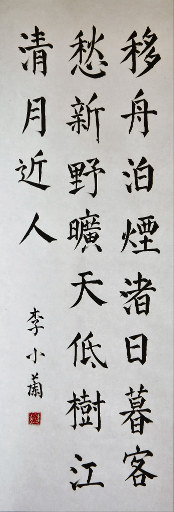 移舟泊煙渚日暮客
愁新野曠天低樹江
清月近人
李小蘭